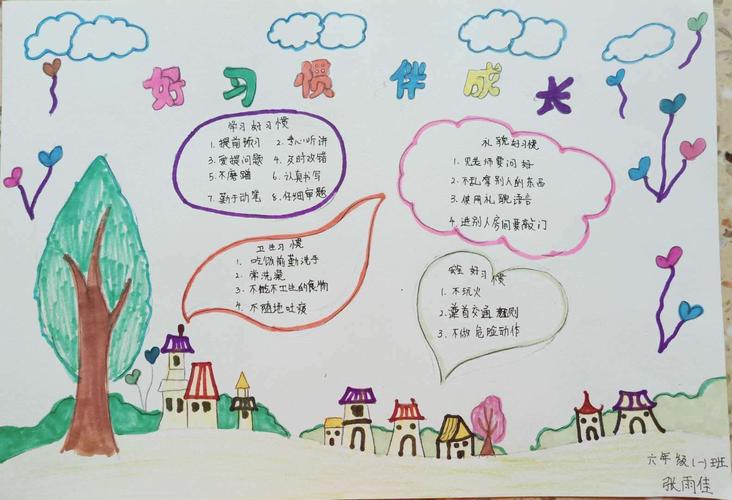 好习惯伴成长
学习好习惯
1. 提前预习 2. 专心听讲
3. 爱提问题 4. 及时改错
5. 不磨蹭 6. 认真书写
7. 勤于动笔 8. 仔细审题
礼貌好习惯
1. 见老师要问好
2. 不乱拿别人的东西
3. 使用礼貌语言
4. 进别人房间要敲门
卫生习惯
1. 吃饭前勤洗手
2. 常洗澡
3. 不吃不卫生的食物
4. 不随地吐痰
安全好习惯
1. 不玩火
2. 遵首交通规则
3. 不做危险动作
六年级(一)班
张雨佳